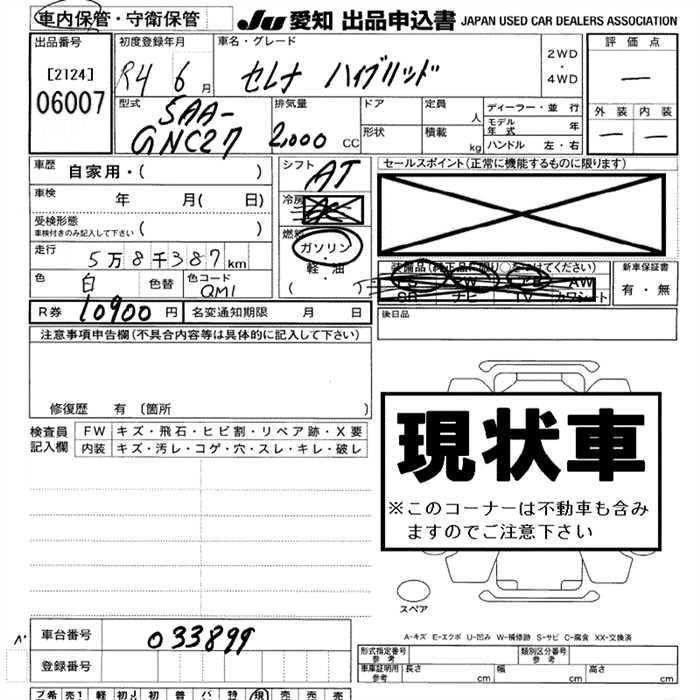 車内保管・守衛保管
JU 愛知 出品申込書 JAPAN USED CAR DEALERS ASSOCIATION
出品番号 初度登録年月 車名・グレード 評価点
[2124] R4 6月 セレナ ハイブリッド 2WD・4WD —
06007 型式 排気量 ドア 定員 人 ディーラー・並行 外装 内装
5AA-GNC27 2,000 CC 形状 積載 kg モデル年式 年 — —
ハンドル 左・右
車歴 自家用・( ) シフト AT セールスポイント(正常に機能するものに限ります)
車検 年 月( 日) 冷房
受検形態 車検付きのみ記入して下さい ( ) 燃料 ガソリン・軽・油 ( )
走行 5万8千387km
色 白 色替 色コード QM1 新車保証書
有・無
R券 10900円 名変通知期限 月 日 後日品
注意事項申告欄(不具合内容等は具体的に記入して下さい)
修復歴 有 〔箇所 〕
検査員記入欄 FW キズ・飛石・ヒビ割・リペア跡・X要
内装 キズ・汚レ・コゲ・穴・スレ・キレ・破レ
現状車
※このコーナーは不動車も含み
ますのでご注意下さい
スペア
A-キズ E-エクボ U-凹み W-補修跡 S-サビ C-腐食 XX-交換済
車台番号 033899
登録番号
形式指定番号 参考 類別区分番号 参考
車庫証明用 参考 長さ cm 幅 cm 高さ cm